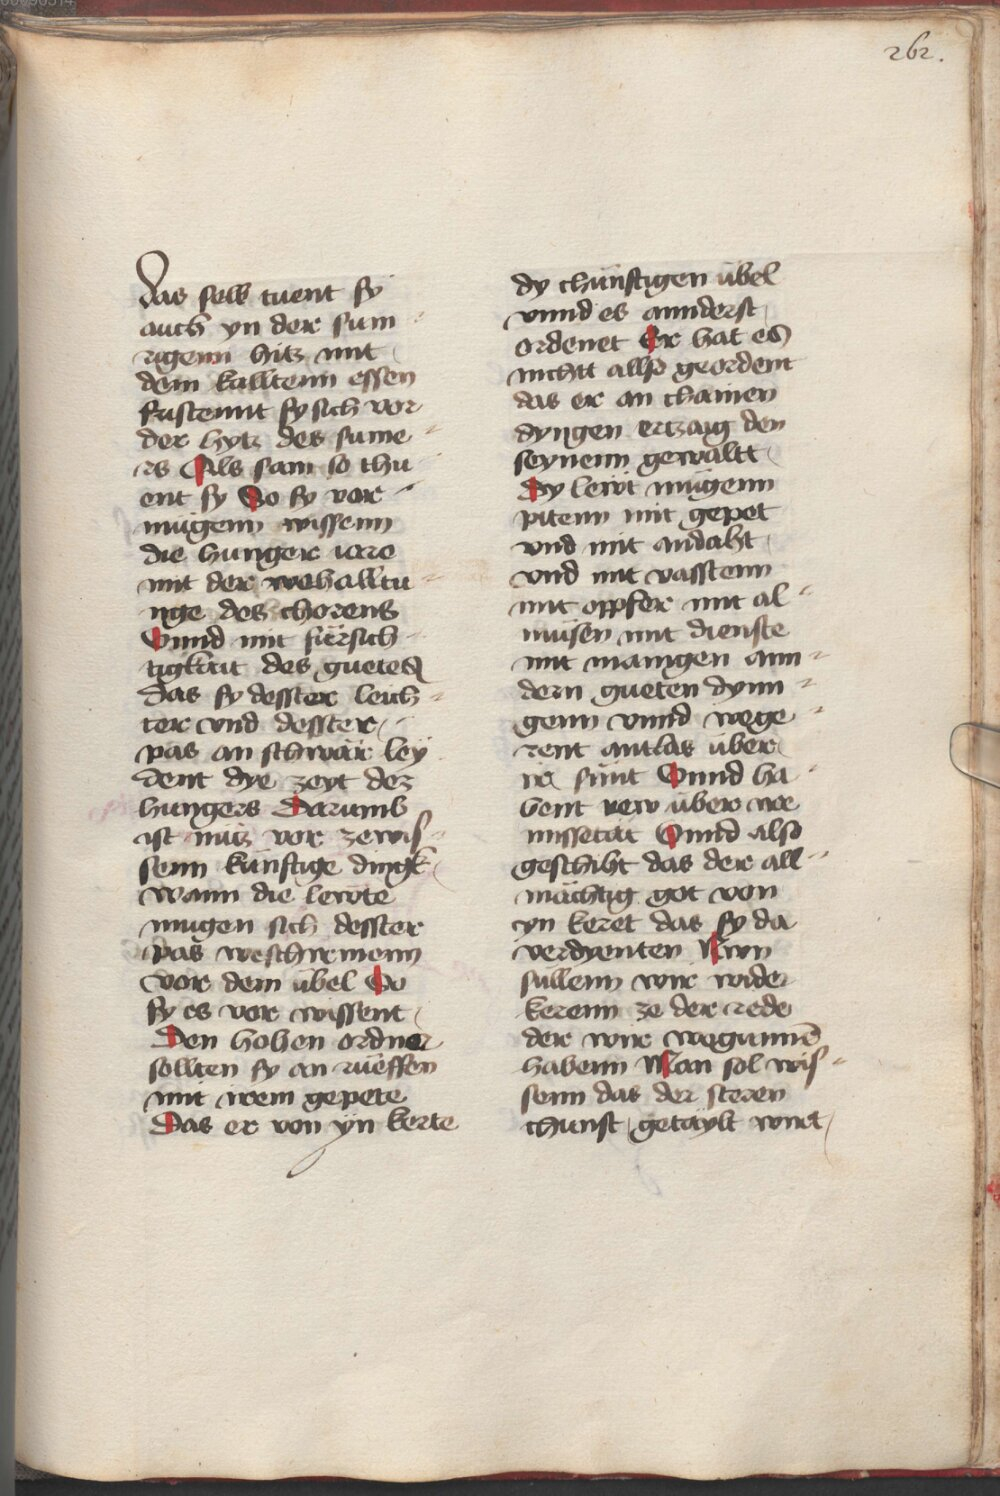 262.
das selb tuent sy
auch yn der sum
rigenn hitz mit
dem kalltenn essen
fristennt sy sich vor
der hytz des sume
rs Als sam so thu
ent sy So sy vor
mugenn wissenn
die hunger iare
mit der wehalltu
nge des chorens
Vnnd mit fürsich
tigkait des gueter
das sy desster leich
ter vnd desster
pas an schwär ley
dent dye zeyt dez
hungers Darumb
ist nutz vor zewis
senn künftige dingk
wann die lewte
mugen sich desster
pas weschirmenn
vor dem übel So
sy es vor wissent
Den hohen ordner
sollten sy an rüeffen
mit irem gepete
Das er von yn kerte
dy chünftigen übel
vnnd es annderst
ordenet Er hat es
nichtt allso geordent
das er an chainen
dyngen ertzaig den
seynenn gewaltt
Dy lewt mügenn
pitenn mit gepet
vnd mit andaht
vnd mit vasstenn
mit oppfer mit al
müsen mit dienste
mit manigen ann
dern gueten dynn
genn vnnd wege
rent antlas über
ir sünt Vnnd ha
bent rew über ire
missetat Vnnd also
geschiht das der all
mächtig got von
yn keret das sy da
verdyenten Nwn
sullenn wir wider
kerenn ze der rede
der wir wegunnē
habenn Man sol wis
senn das der steren
chunst getaylt wirt